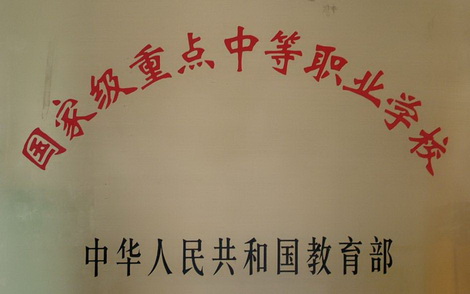 国家级重点中等职业学校
中华人民共和国教育部